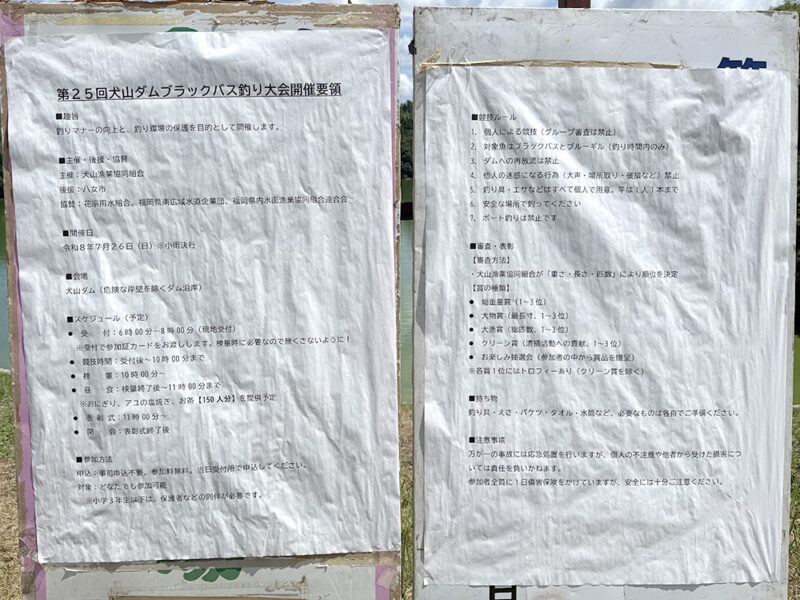 第２５回犬山ダムブラックバス釣り大会開催要領
■趣旨
釣りマナーの向上と、釣り環境の保護を目的として開催します。
■主催・後援・協賛
主催：犬山漁業協同組合
後援：八女市
協賛：花宗用水組合、福岡県南広域水道企業団、福岡県内水面漁業協同組合連合会
■開催日
令和８年７月２６日（日）※小雨決行
■会場
犬山ダム（危険な岸壁を除くダム沿岸）
■スケジュール（予定）
● 受　付：６時００分～８時００分（現地受付）
※受付で参加証カードをお渡しします。検量時に必要なので無くさないように！
● 競技時間：受付後～１０時００分まで
● 検　量：１０時００分～
● 昼　食：検量終了後～１１時００分まで
※おにぎり、アユの塩焼き、お茶【150人分】を提供予定
● 表彰式：１１時００分～
● 閉　会：表彰式終了後
■参加方法
申込：事前申込不要。参加料無料。当日受付所で申込してください。
対象：どなたでも参加可能
※小学３年生以下は、保護者などの同伴が必要です。
■競技ルール
1. 個人による競技（グループ審査は禁止）
2. 対象魚はブラックバスとブルーギル（釣り時間内のみ）
3. ダムへの再放流は禁止
4. 他人の迷惑になる行為（大声・場所取り・破損など）禁止
5. 釣り具・エサなどはすべて個人で用意。竿は１人１本まで
6. 安全な場所で釣ってください
7. ボート釣りは禁止です
■審査・表彰
【審査方法】
・犬山漁業協同組合が「重さ・長さ・匹数」により順位を決定
【賞の種類】
● 総重量賞（1～3位）
● 大物賞（最長寸、1～3位）
● 大漁賞（総匹数、1～3位）
● クリーン賞（清掃活動への貢献、1～3位）
● お楽しみ抽選会（参加者の中から賞品を贈呈）
※各賞１位にはトロフィーあり（クリーン賞を除く）
■持ち物
釣り具・えさ・バケツ・タオル・水筒など、必要なものは各自でご準備ください。
■注意事項
万が一の事故には応急処置を行いますが、個人の不注意や他者から受けた損害につ
いては責任を負いかねます。
参加者全員に１日傷害保険をかけていますが、安全には十分ご注意ください。